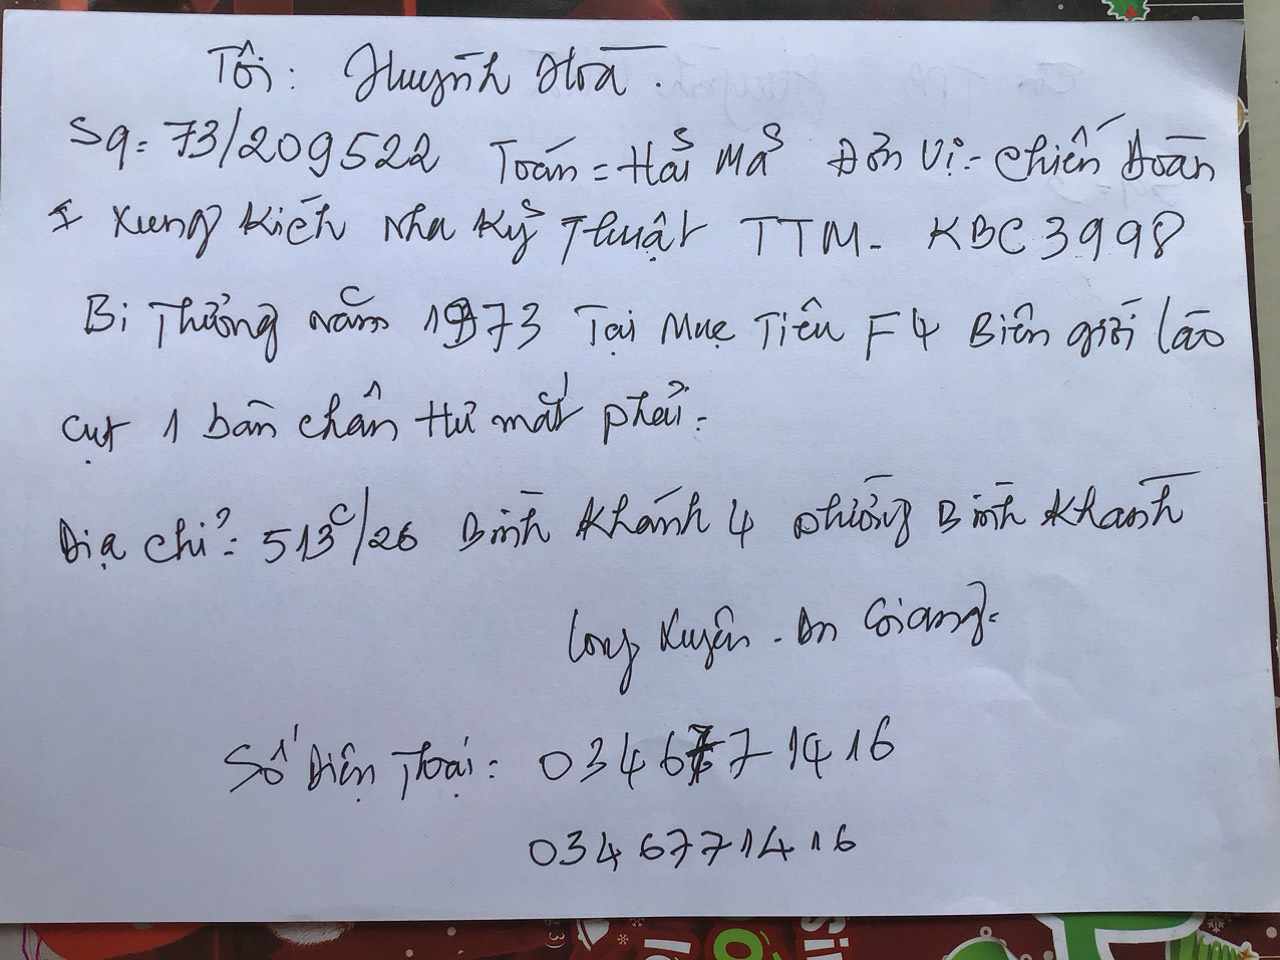 Tôi: Huỳnh Hoà.
SQ= 73/209522 Toán = Hải Mã Đơn Vị:- Chiến Đoàn
I Xung Kích Nha Kỹ Thuật TTM- KBC 3998
Bị Thương năm 1973 Tại Mục Tiêu F4 Biên giới Lào
Cụt 1 bàn chân Hư mắt phải.
Địa chỉ: 513C/26 Bình Khánh 4 Phường Bình Khánh
Long Xuyên - An Giang.
Số Điện Thoại: 0346771416
0346771416